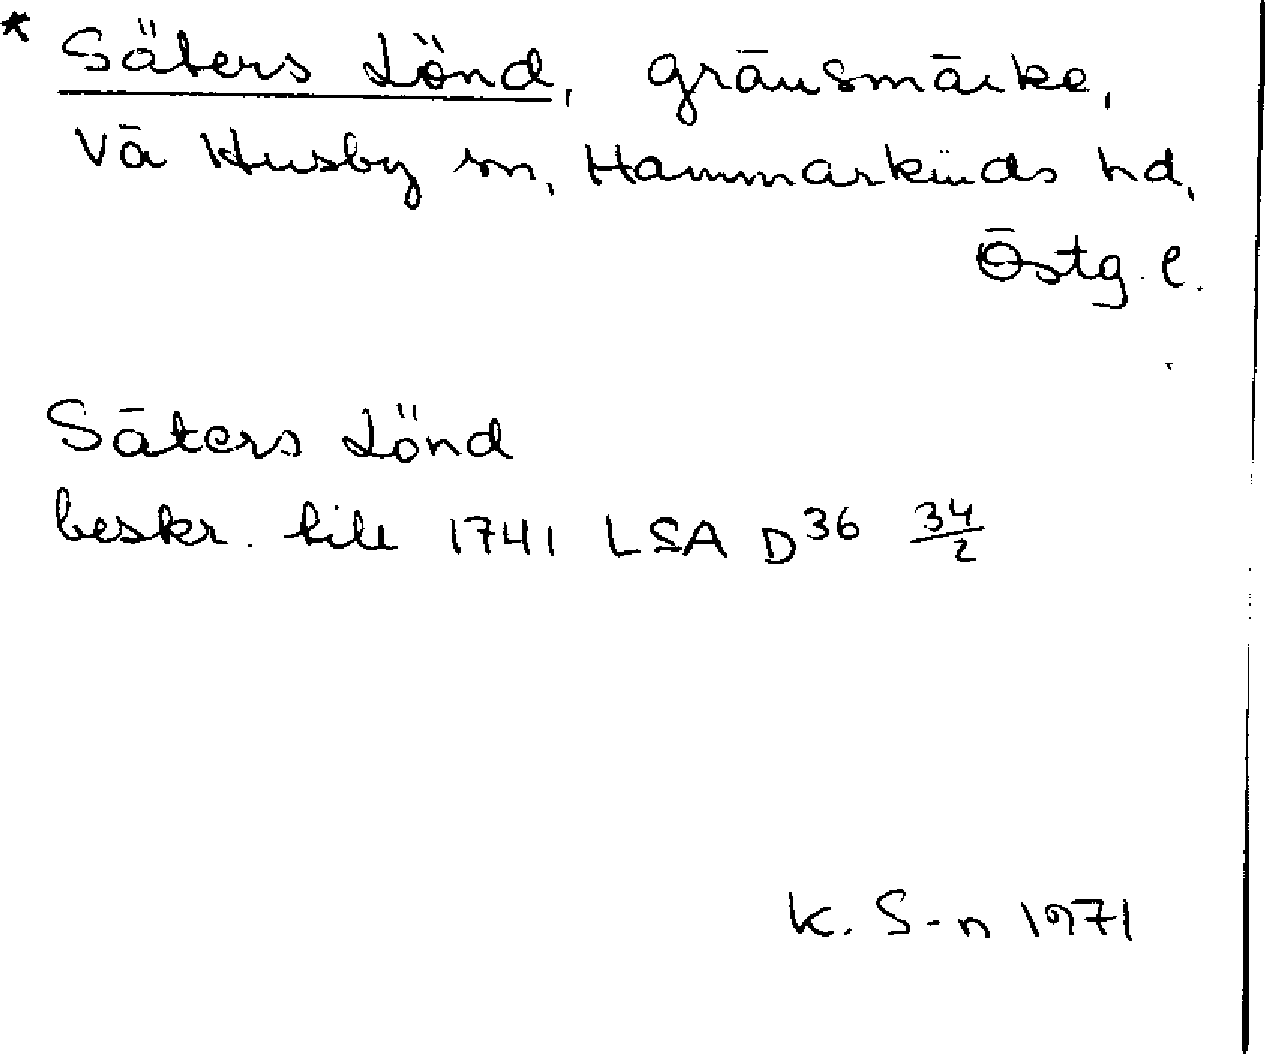 * Säters Lönd, gränsmärke,
Vä Husby sn, Hammarkinds hd,
Östg. l.
Säters Lönd
beskr. till 1741 LSA D36 34/2
K. S-n 1971